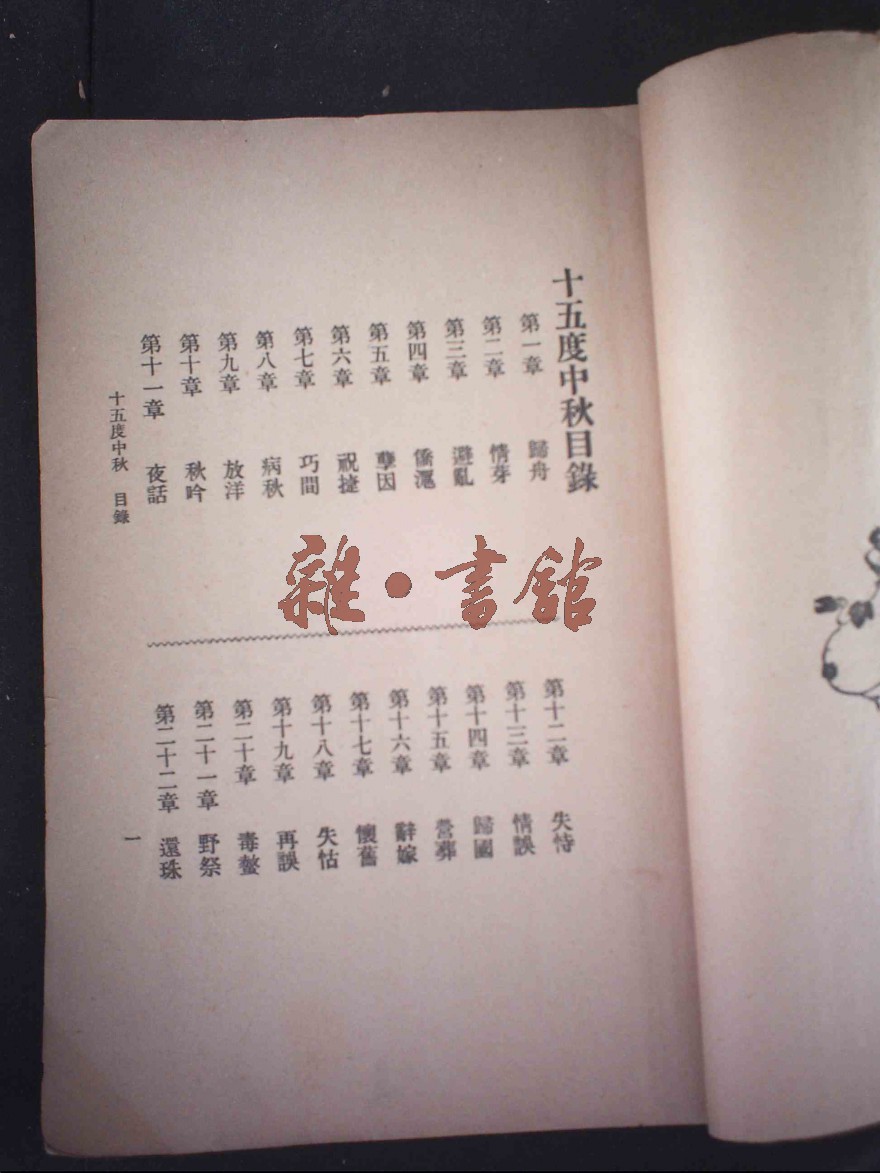 十五度中秋目錄
第一章 歸舟
第二章 情芽
第三章 避亂
第四章 僑滬
第五章 孽因
第六章 祝捷
第七章 巧間
第八章 病秋
第九章 放洋
第十章 秋吟
第十一章 夜話
第十二章 失恃
第十三章 情誤
第十四章 歸國
第十五章 營葬
第十六章 辭嫁
第十七章 懷舊
第十八章 失怙
第十九章 再誤
第二十章 毒螫
第二十一章 野祭
第二十二章 還珠
十五度中秋 目錄
一
雜·書館